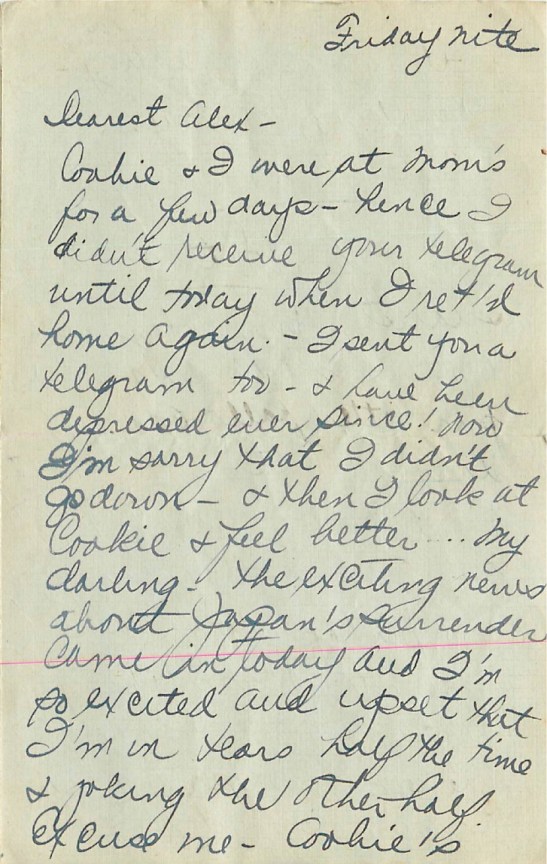 Friday nite
Dearest Alex -
Cookie & I were at Mom's
for a few days - hence I
didn't receive your telegram
until today when I ret'd
home again. - I sent you a
telegram too - & have been
depressed ever since! Now
I'm sorry that I didn't
go down - & then I look at
Cookie & feel better ... My
darling - the exciting news
about Japan's surrender
came in today and I'm
so excited and upset that
I'm in tears half the time
& joking the other half.
Excuse me - Cookie's